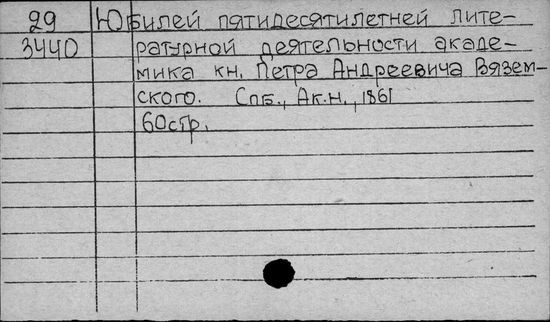 29 Юбилей пятидесятилетней лите-
3440 ратурной деятельности акаде-
мика кн. Петра Андреевича Вязем-
ского. Спб., Ак.н., 1861
60стр.